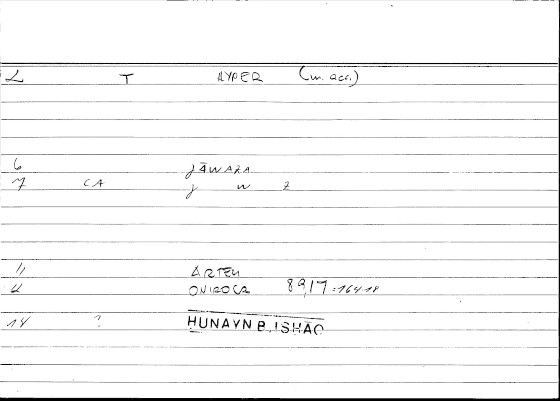 L T HYPER (m. acc.)
6 JĀWAZA
7 CA J W Z
11 ARTEM
12 ONIROCR 89,17 = 164,18
14 ? HUNAYN B. ISHĀQ